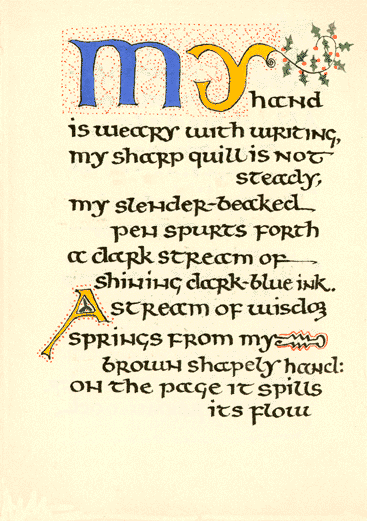 My hand
is weary with writing,
my sharp quill is not
steady,
my slender-beaked
pen spurts forth
a dark stream of
shining dark-blue ink.
A stream of wisdom
springs from my
brown shapely hand:
on the page it spills
its flow